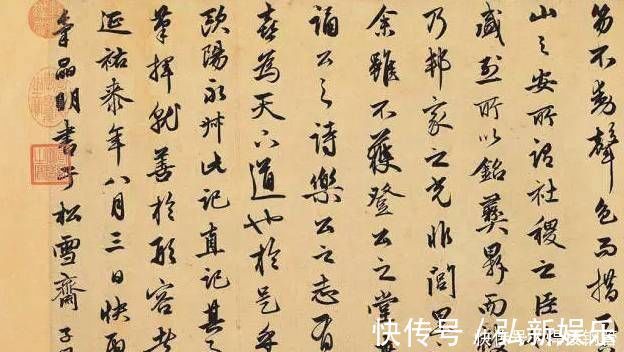 笏不動聲色而措
山之安所謂社稷之臣
盛烈所以銘彝鼎而
乃邦家之光非閭里
余雖不獲登公之堂
誦公之詩樂公之志有
喜為天下道也於是乎
歐陽永叔此記直記其
筆揮就善於形容者
延祐泰年八月三日快雨
晶明書于松雪齋 子
快传号 / 弘新娱乐